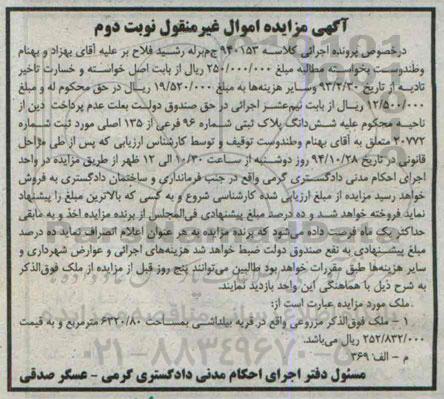 آگهی مزایده اموال غیرمنقول نوبت دوم
درخصوص پرونده اجرائی کلاسه ۹۴۰۱۵۳ ج‌م‌برله رشید فلاح بر علیه آقای بهزاد و بهنام
وظندوست بخواسته مطالبه مبلغ ۲۵۰/۰۰۰/۰۰۰ ریال از بابت اصل خواسته و خسارت تاخیر
تادیه از تاریخ ۹۳/۲/۳۰ وسایر هزینه‌ها به مبلغ ۱۹/۵۲۰/۰۰۰ ریال در حق محکوم له و مبلغ
۱۲/۵۰۰/۰۰۰ ریال از بابت نیم‌عشر اجرائی در حق صندوق دولت بعلت عدم پرداخت دین از
ناحیه محکوم علیه شش‌دانگ پلاک ثبتی شماره ۹۶ فرعی از ۱۳۵ اصلی مورد ثبت شماره
۲۰۷۷۲ متعلق به آقای بهنام وظندوست توقیف و توسط کارشناس ارزیابی که پس از طی مراحل
قانونی در تاریخ ۹۴/۱۰/۲۸ روز دوشنبه از ساعت ۱۰/۳۰ الی ۱۲ ظهر از طریق مزایده در واحد
اجرای احکام مدنی دادگستری گرمی واقع در جنب فرمانداری و ساختمان دادگستری به فروش
خواهد رسید مزایده از مبلغ ارزیابی شده کارشناسی شروع و به کسی که بالاترین مبلغ را پیشنهاد
نماید فروخته خواهد شد و ده درصد مبلغ پیشنهادی فی‌المجلس از برنده مزایده اخذ و به مابقی
حداکثر یک ماه فرصت داده می‌شود که برنده مزایده به هر عنوان اعلام انصراف نماید ده درصد
مبلغ پیشنهادی به نفع صندوق دولت ضبط خواهد شد هزینه‌های اجرائی و عوارض شهرداری و
سایر هزینه‌ها طبق مقررات خواهد بود طالبین می‌توانند پنج روز قبل از مزایده از ملک فوق‌الذکر
به شرح ذیل با هماهنگی این واحد بازدید نمایند.
ملک مورد مزایده عبارت است از:
۱ – ملک فوق‌الذکر مزروعی واقع در قریه بیلداشی بمساحت ۶۳۲۰/۸۰ مترمربع و به قیمت
۲۵۲/۸۳۲/۰۰۰ ریال می‌باشد.
م – الف: ۳۶۹
مسئول دفتر اجرای احکام مدنی دادگستری گرمی – عسگر صدقی
۰۲۱-۸۸۳۴۹۶۷۰-۵